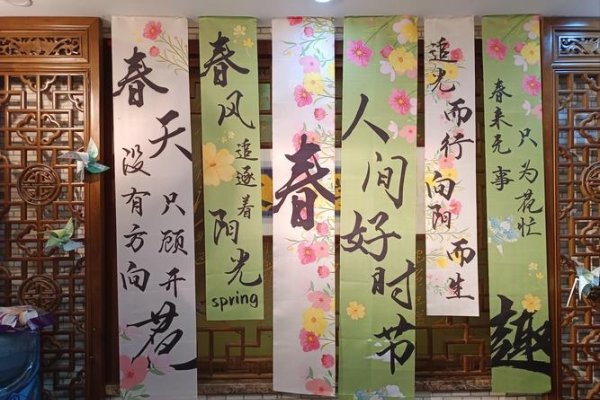 春天
没有方向
只顾开
春风
追逐着
阳光
spring
春
人间好时节
追光而行
向阳而生
春来无事
只为花忙
趣